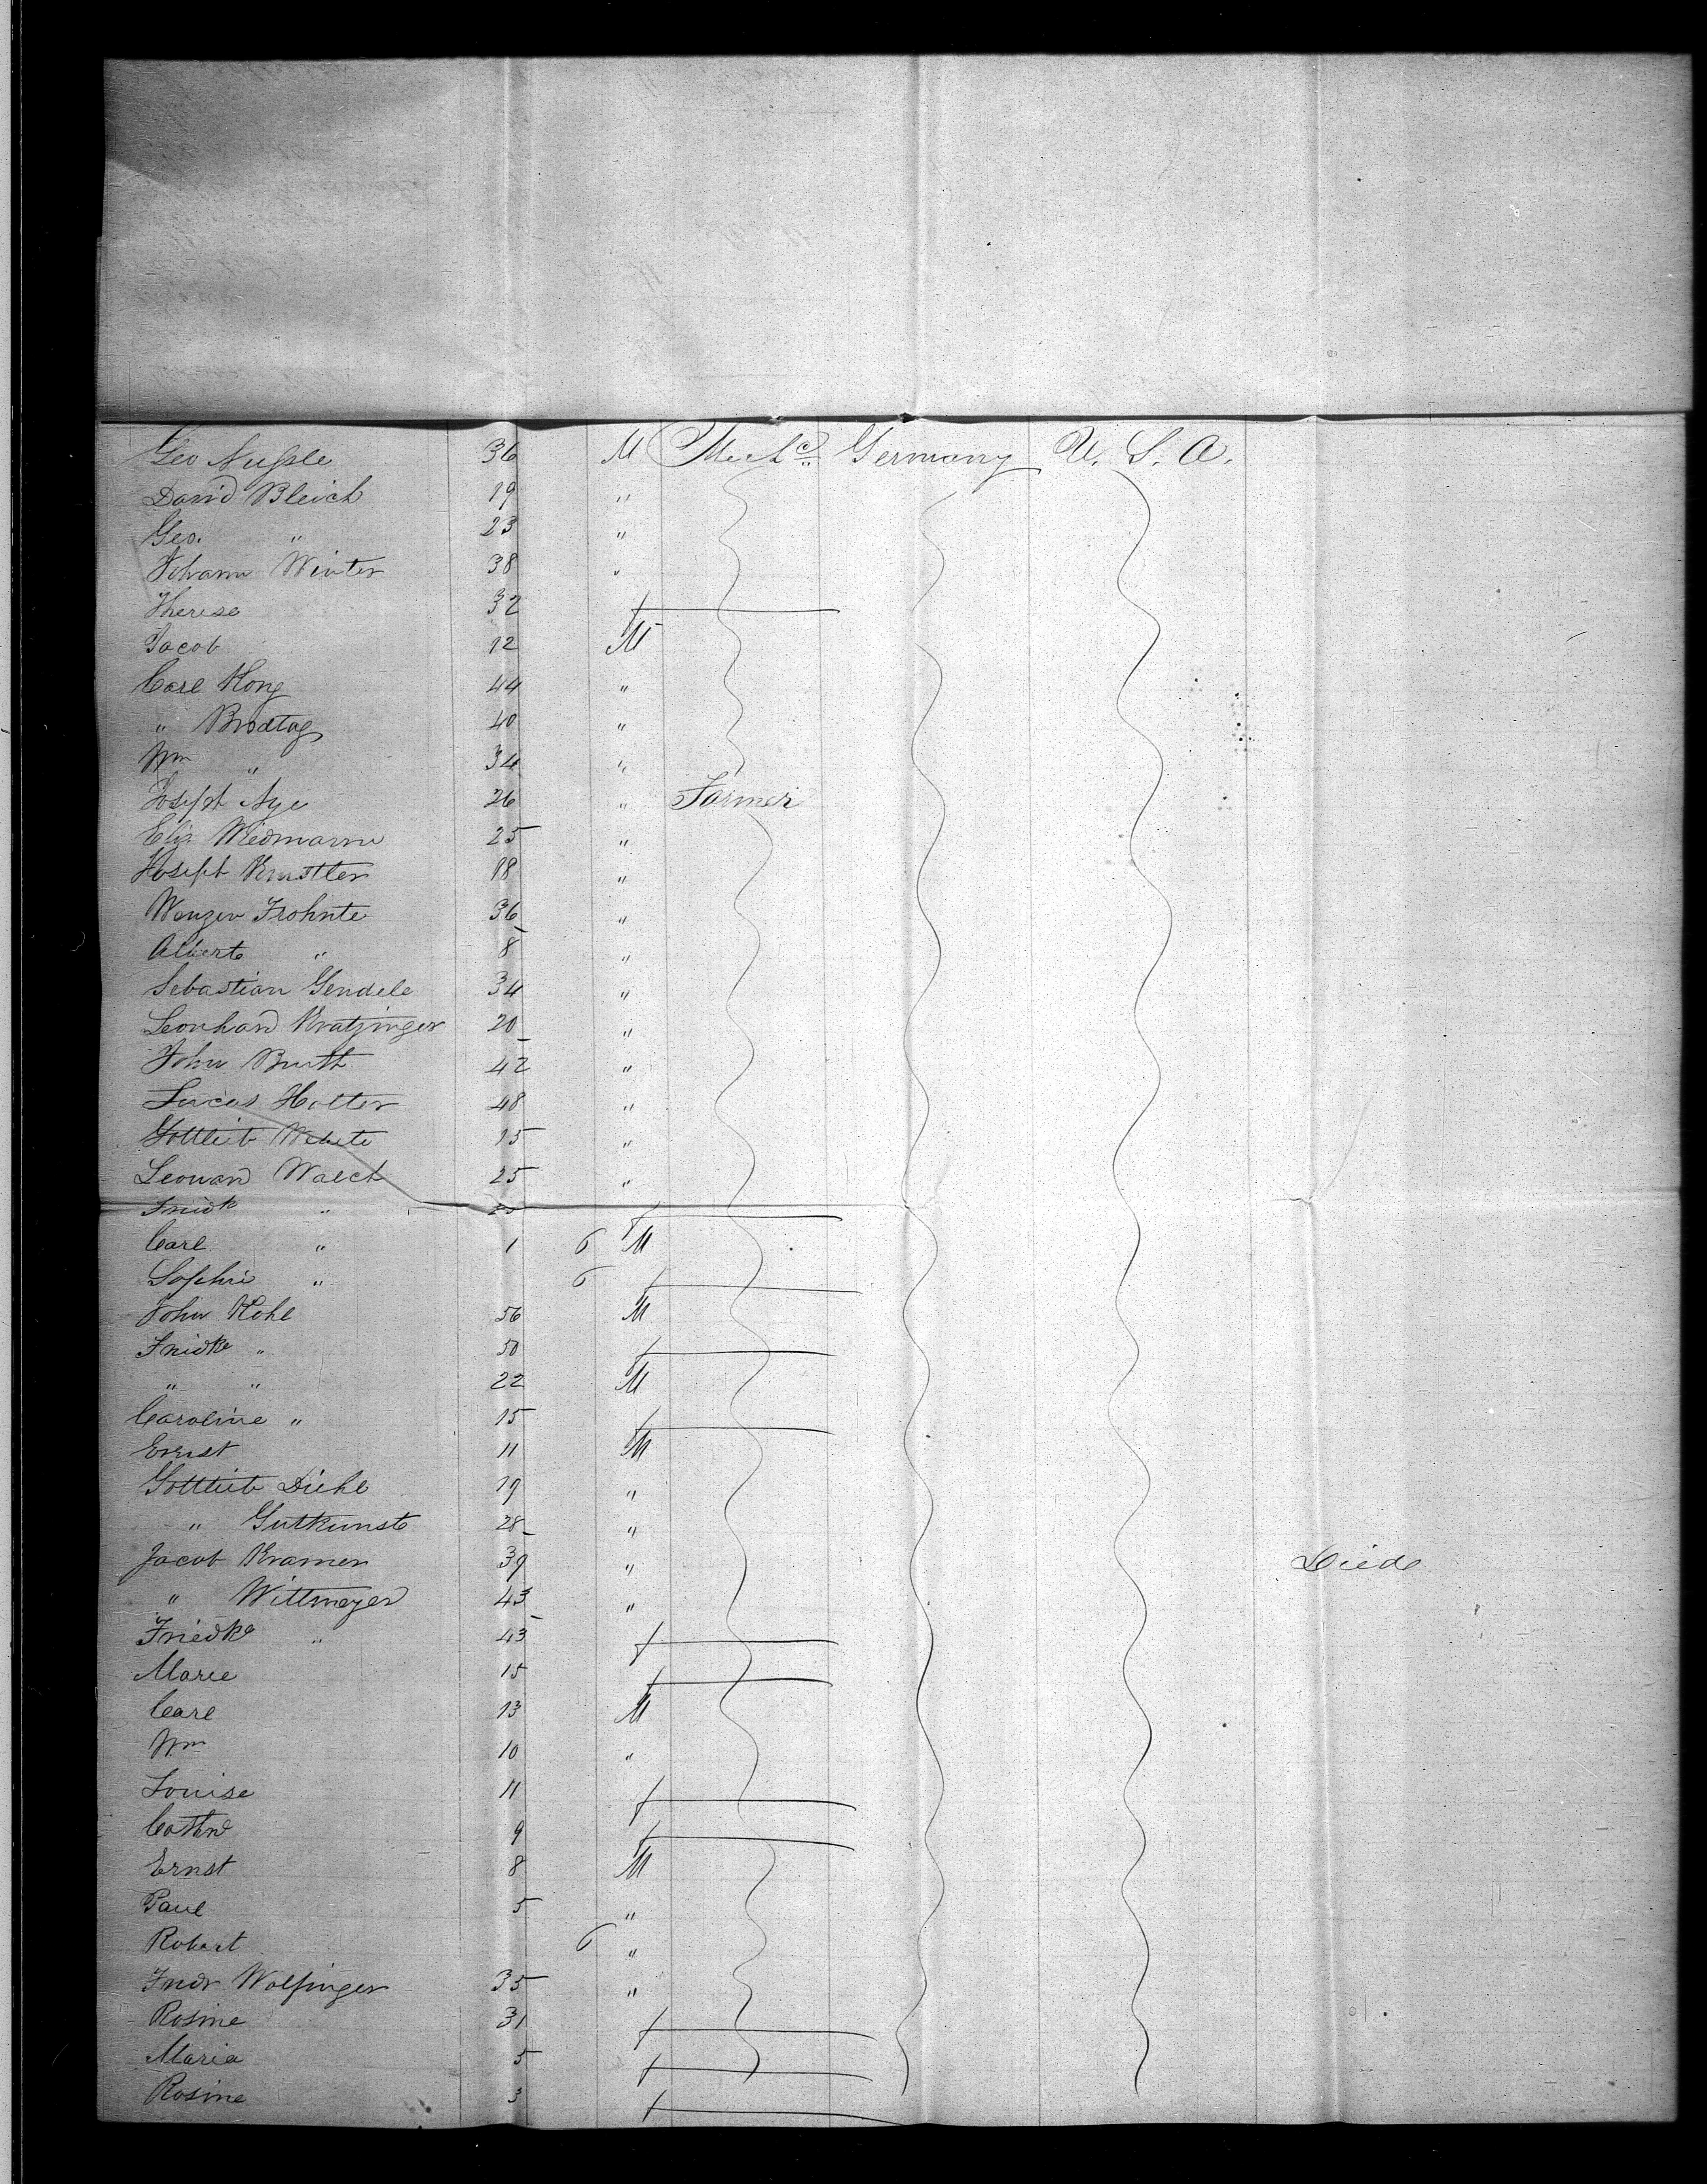 Geo Nussle 36 M Mech^c Germany U. S. A.
David Bleich 19 "
Geo. " 23 "
Johann Winter 38 "
Therese 32 f
Jacob 12 M
Carl Kong 44 "
" Brodtag 40 "
Wm " 34 "
Joseph Aye 26 " Farmer
Eliz Wiedmann 25 "
Joseph Knustler 18 "
Wenzen Frohnte 36 "
Albert " 8 "
Sebastian Gendele 34 "
Leonhard Kratzinger 20 "
John Buth 42 "
Lucas Holter 48 "
Gottlieb 15 "
Leonard Walch 25 "
Friedk " 25 f
Carl " 1 6 M
Sophie " 6 f
John Kohl 56 M
Friedke " 50 f
" " 22 M
Caroline " 15 f
Ernst 11 M
Gottlieb Diehl 19 "
" Gutkunst 28 "
Jacob Kramer 39 " Died
" Wittmeyer 43 "
Friedke " 43 f
Marie 15 f
Carl 13 M
Wm 10 "
Louise 11 f
Cathne 9 f
Ernst 8 M
Paul 5 "
Robert 6 "
Fredr Wolfinger 35 "
Rosine 31 f
Maria 5 f
Rosine 3 f